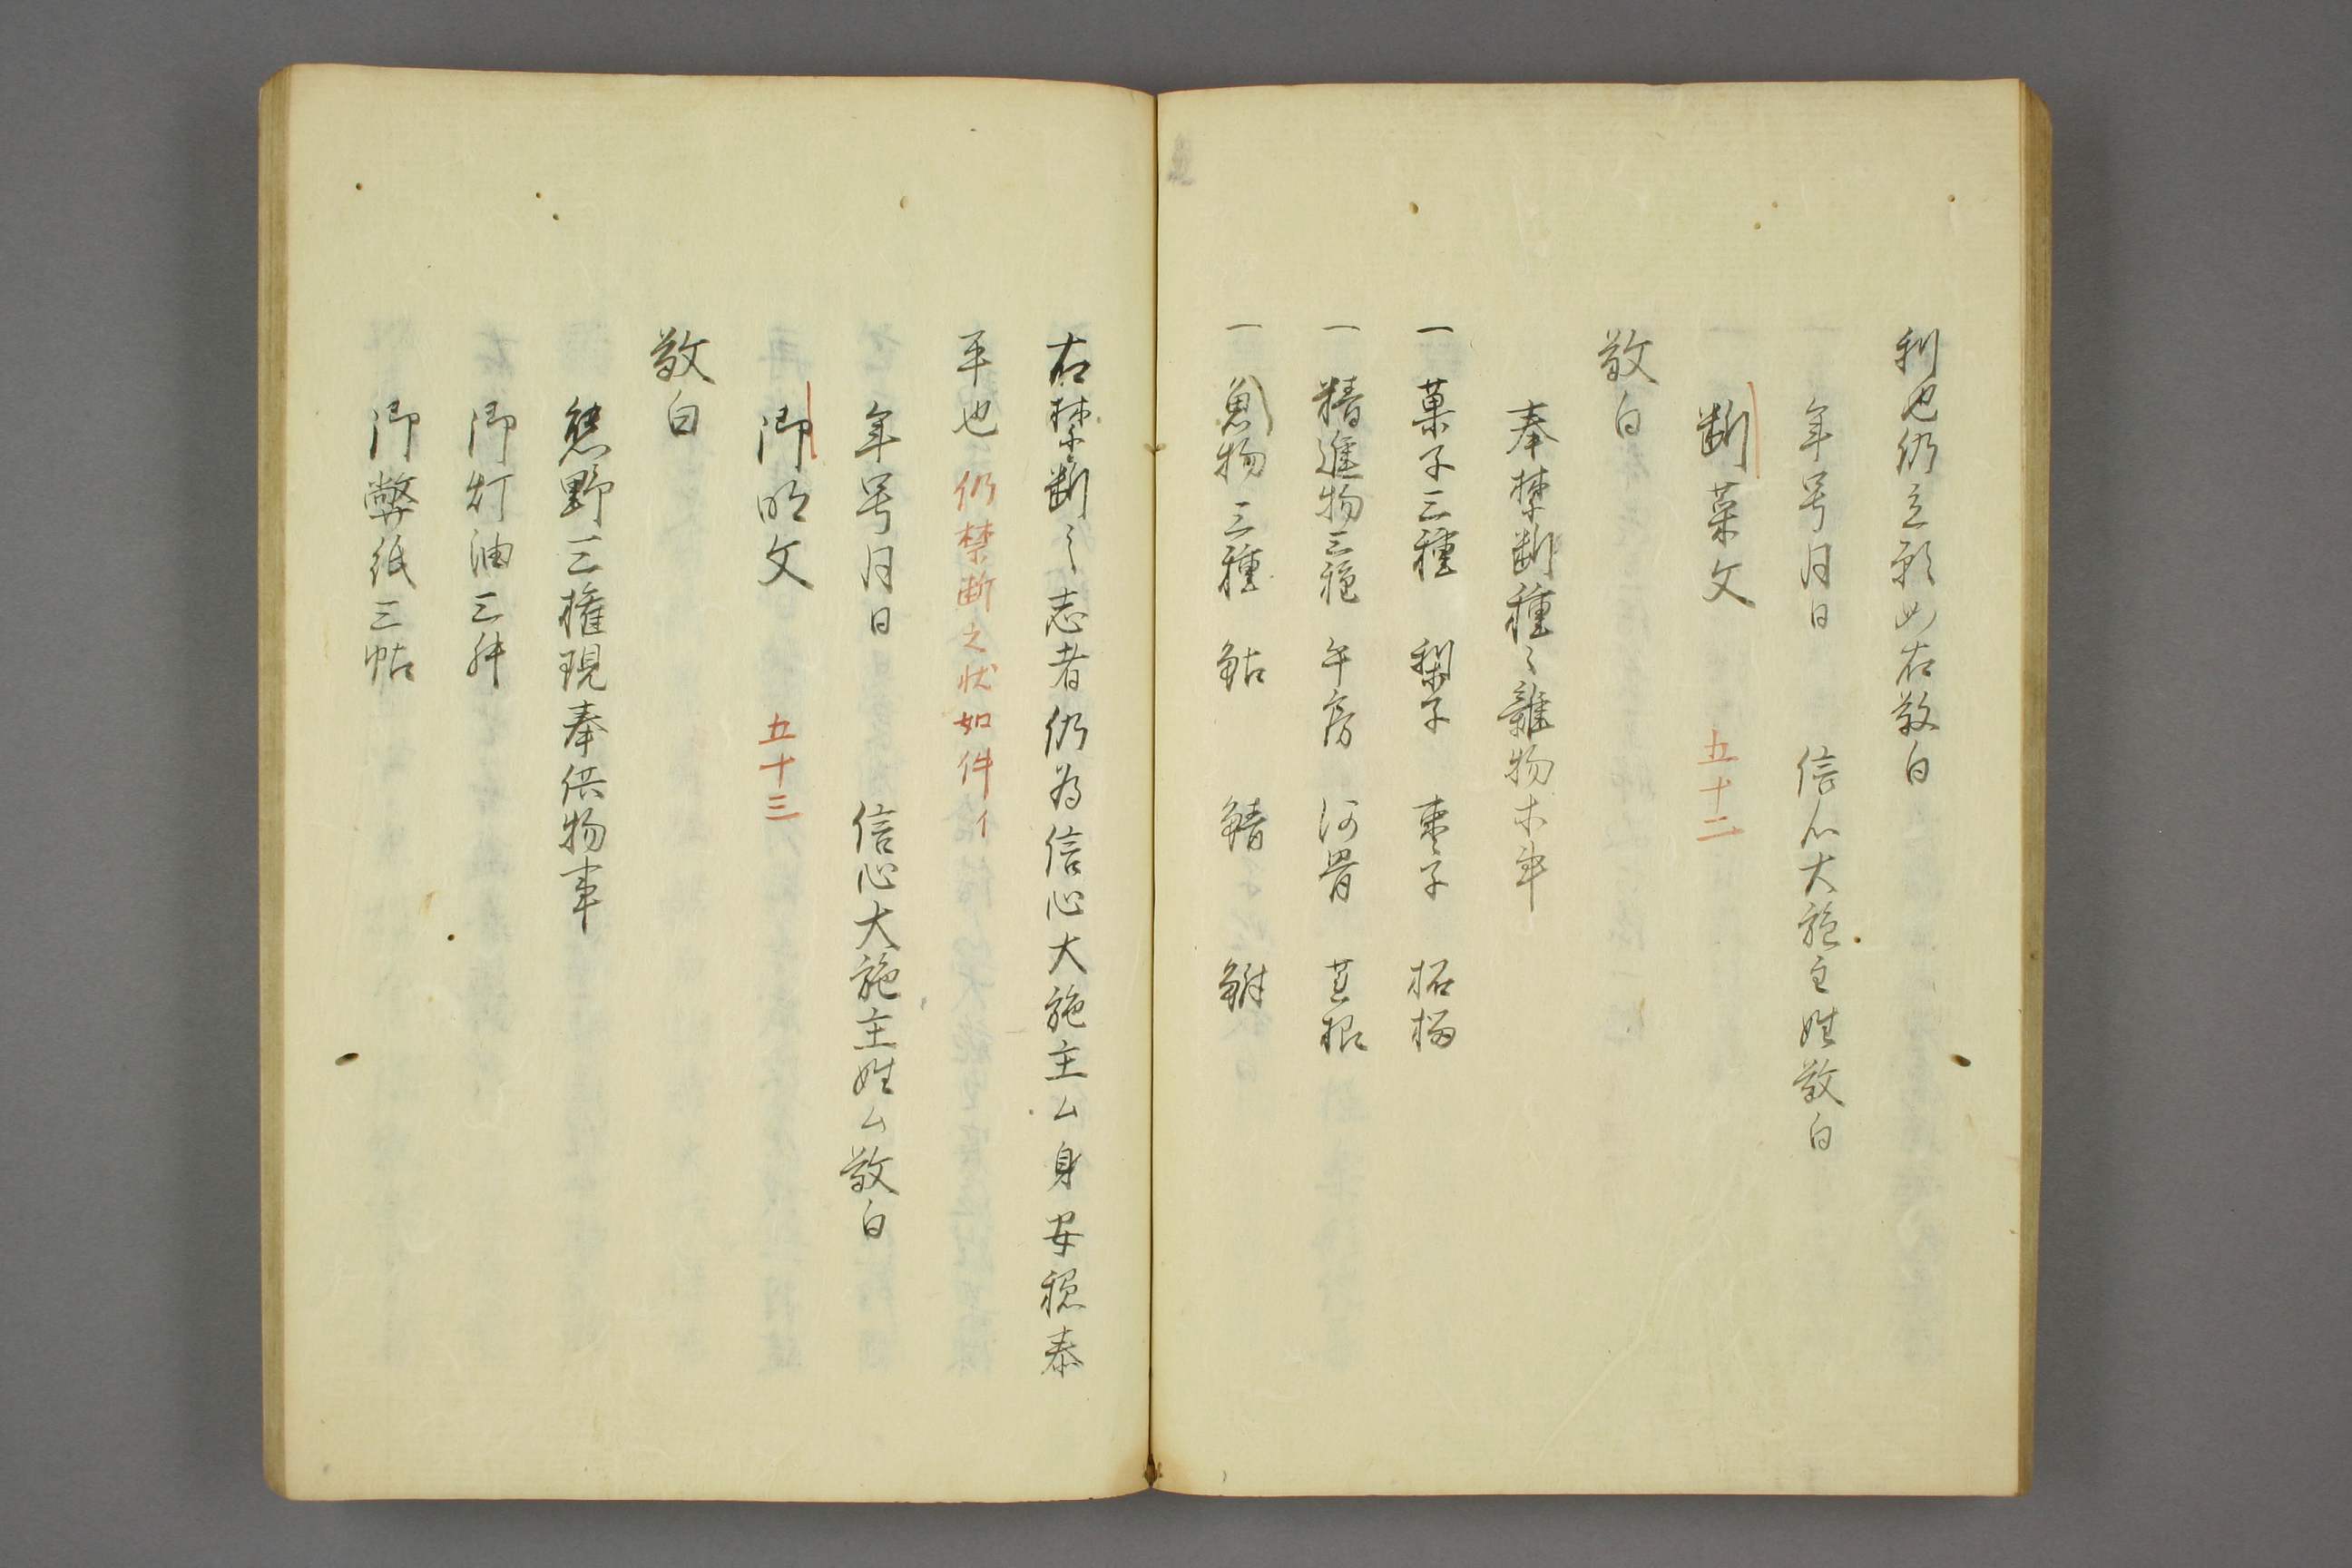 利也仍立願如右敬白
年号月日　信心大施主姓敬白
断菜文　五十二
敬白
奉禁断種〻雑物木事
一　菓子三種　梨子　棗子　柘榴
一　精進物三種　午房　河骨　莒根
一　魚物三種　鮎　鯖　鮒
右禁断之志者仍為信心大施主ム身安穏泰
平也　仍禁断之状如件イ
年号月日　信心大施主姓ム敬白
御明文　五十三
敬白
熊野三権現奉供物事
御灯油三舛
御幣紙三帖